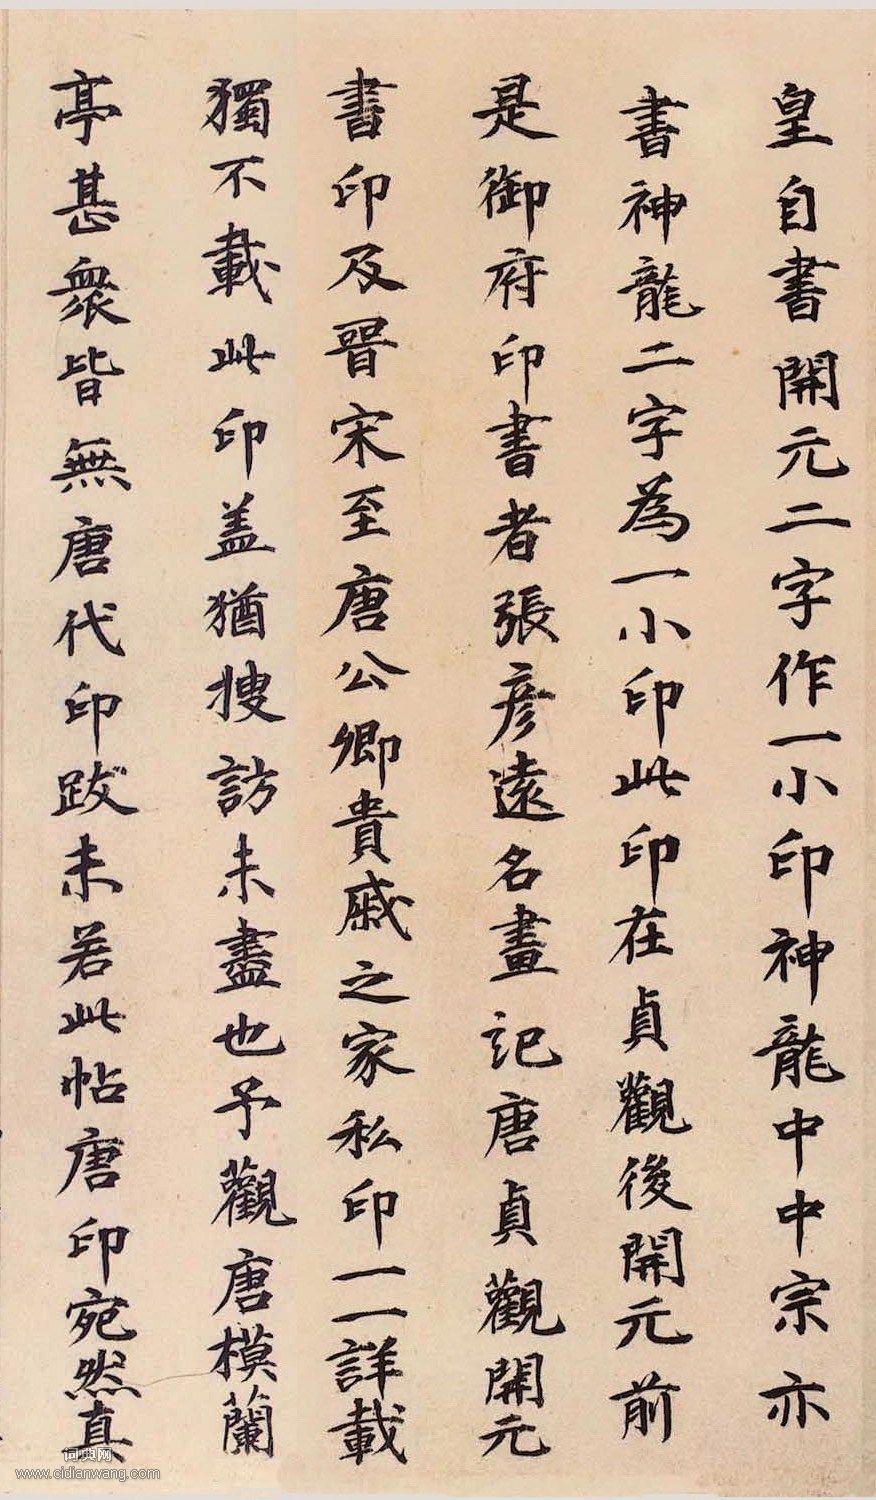 皇自書開元二字作一小印神龍中中宗亦
書神龍二字為一小印此印在貞觀後開元前
是御府印書者張彦遠名畫記唐貞觀開元
書印及晉宋至唐公卿貴戚之家私印一一詳載
獨不載此印盖猶搜訪未盡也予觀唐模蘭
亭甚衆皆無唐代印跋未若此帖唐印宛然真
词典网
www.cidianwang.com